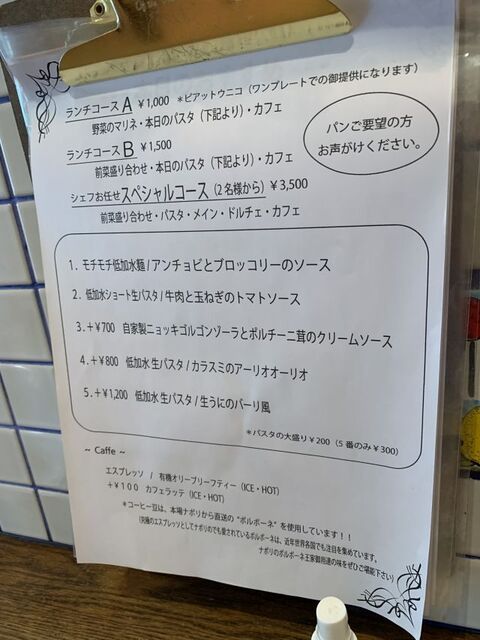 ランチコースA ￥1,000 ＊ピアットウニコ（ワンプレートでの御提供になります）
野菜のマリネ・本日のパスタ（下記より）・カフェ
ランチコースB ￥1,500
前菜盛り合わせ・本日のパスタ（下記より）・カフェ
シェフお任せスペシャルコース（2名様から）￥3,500
前菜盛り合わせ・パスタ・メイン・ドルチェ・カフェ
パンご要望の方
お声がけください。
1．モチモチ低加水麺/アンチョビとブロッコリーのソース
2．低加水ショート生パスタ/牛肉と玉ねぎのトマトソース
3．+￥700 自家製ニョッキゴルゴンゾーラとポルチーニ茸のクリームソース
4．+￥800 低加水生パスタ/カラスミのアーリオオーリオ
5．+￥1,200 低加水生パスタ/生うにのバーリ風
＊パスタの大盛り￥200（5番のみ￥300）
~ Caffe ~
エスプレッソ / 有機オリーブリーフティー（ICE・HOT）
+￥100 カフェラッテ（ICE・HOT）
＊コーヒー豆は、本場ナポリから直送の"ボルボーネ"を使用しています！！
（究極のエスプレッソとしてナポリのでも愛されているボルボーネは、近年世界各国でも注目を集めています。
ナポリのボルボーネ王家御用達の味をぜひご堪能下さい）